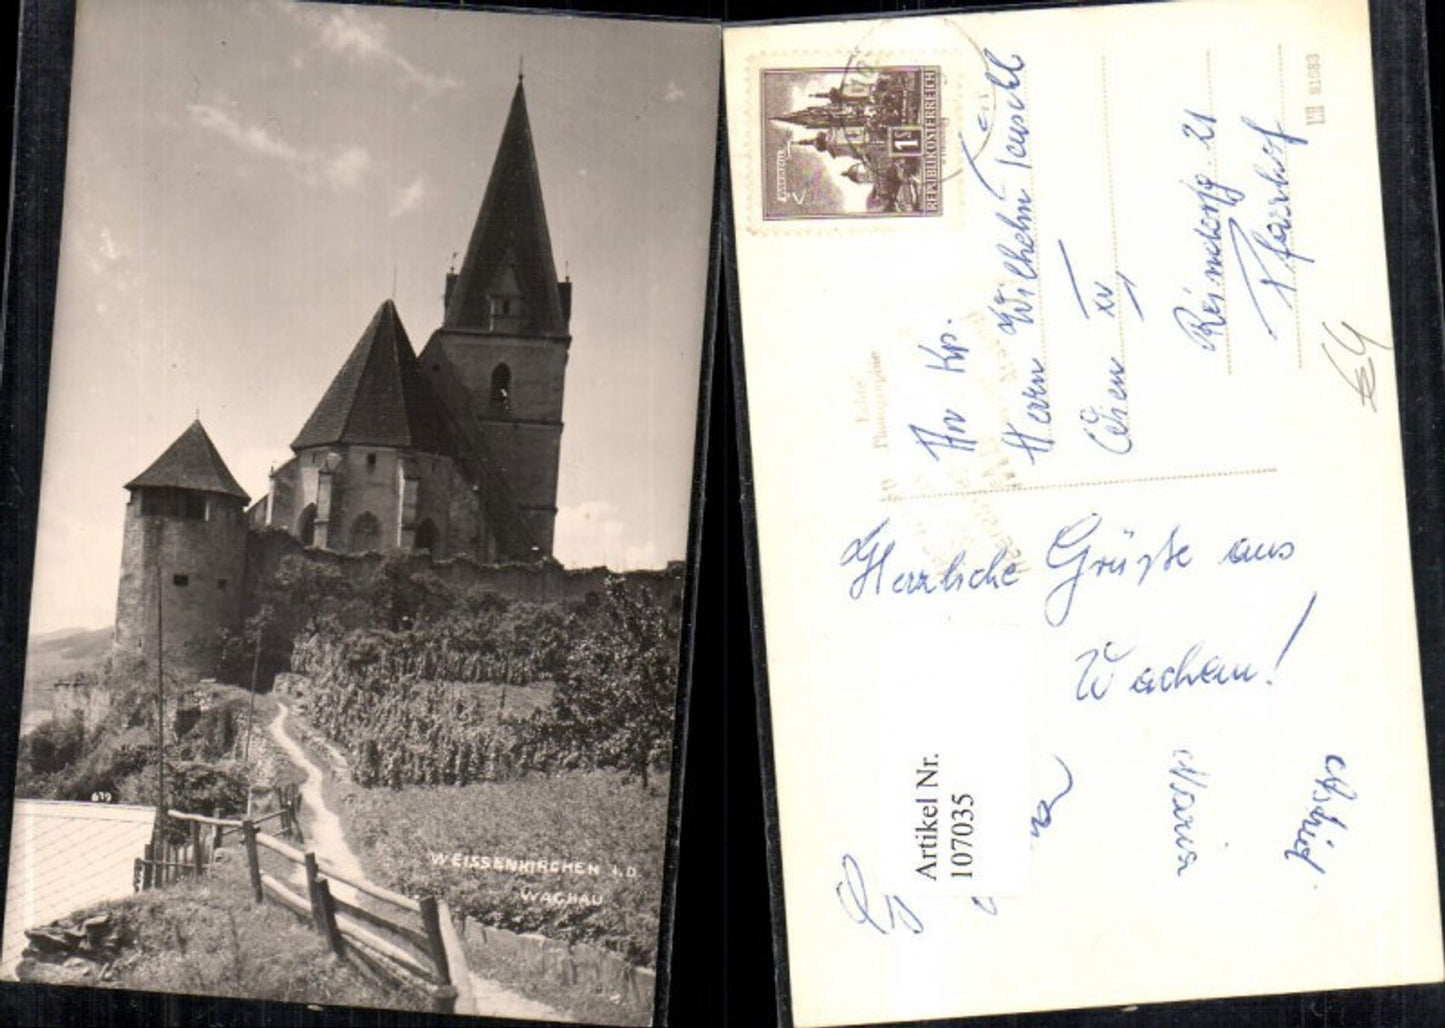 679
WEISSENKIRCHEN I.D.
WACHAU
REPUBLIK ÖSTERREICH
1 S
Echte
Photographie
An Hr.
Herrn Wilhelm
Wien XV
Reindorfg. 21
Pfarrhof
81683
Herzliche Grüße aus
Wachau!
Artikel Nr.
107035
Maria
Astrid